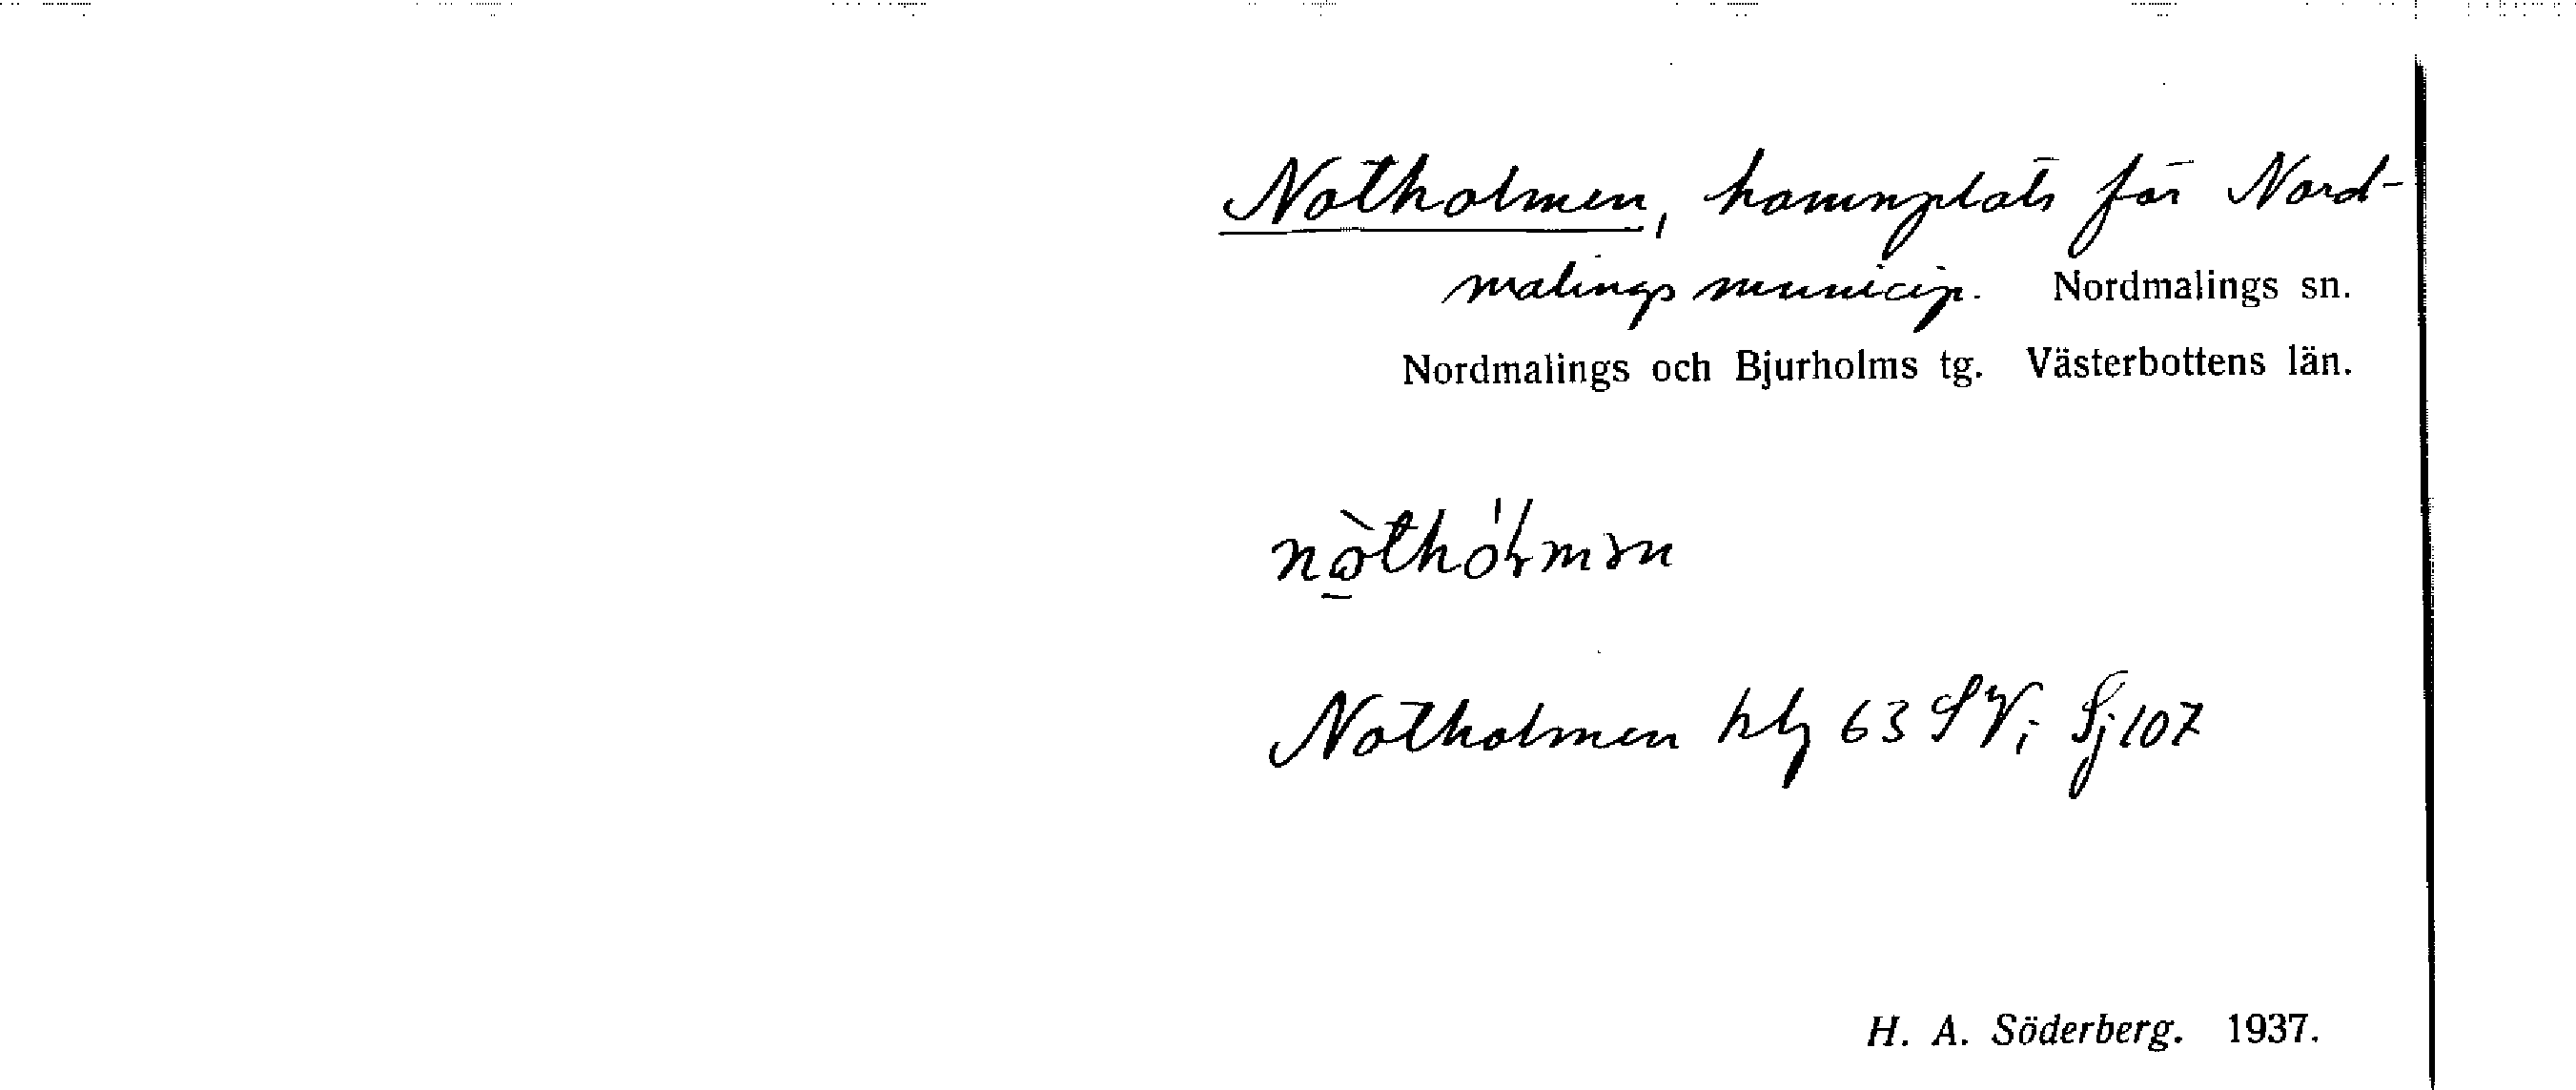 Notholmen, hamnplats för Nord-
malings municip. Nordmalings sn.
Nordmalings och Bjurholms tg. Västerbottens län.
Notholmen 63 SV; Sj 107
H. A. Söderberg. 1937.